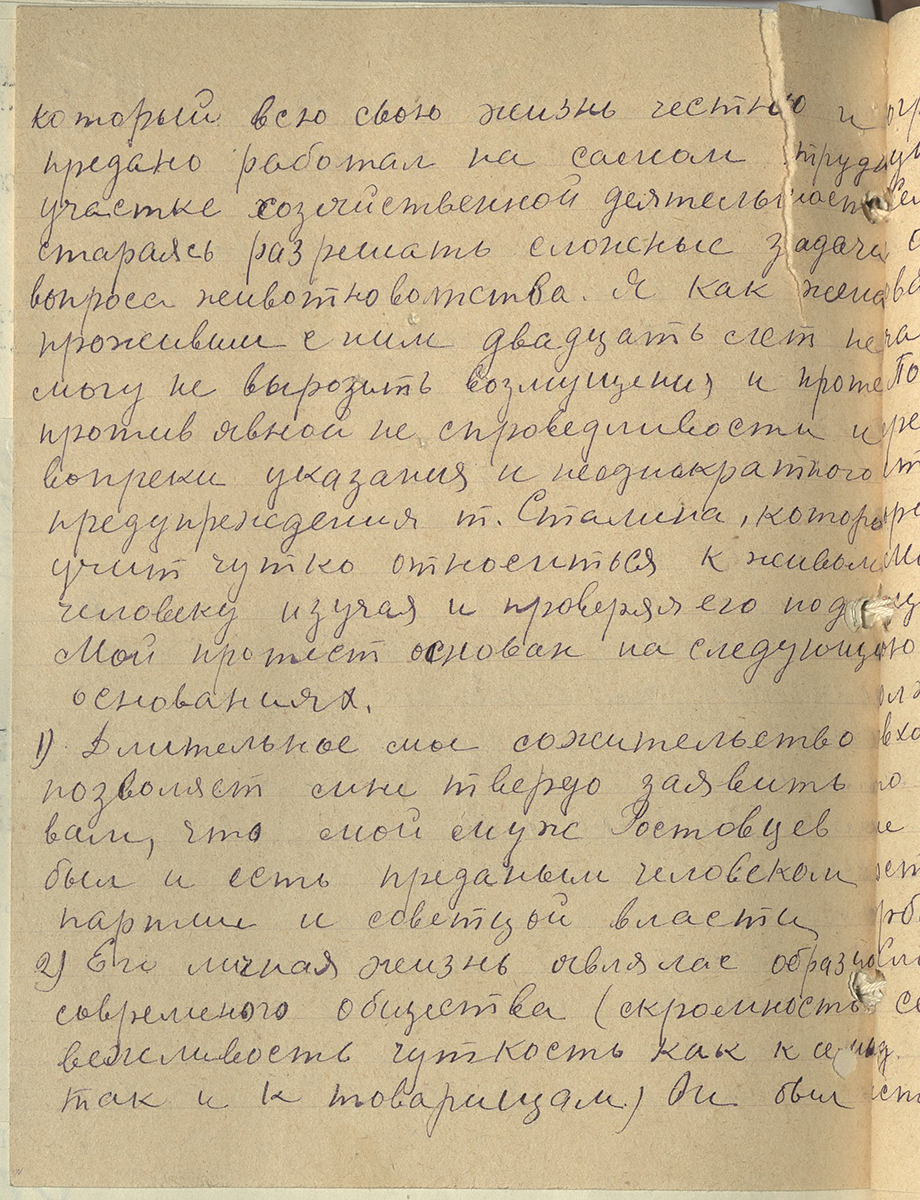 который всю свою жизнь честно и
предано работал на самом трудн
участке хозяйственной деятельност
стараясь разрешать сложные задачи
вопроса животноводства. Я как жена
проживши с ним двадцать лет не
могу не вырозить возмущения и проте
против явной не спроведливости и
вопреки указания и неоднократного
предупреждения т. Сталина, которы
учит чутко относиться к живом
человеку изучая и проверяя его под
Мой протест основан на следующ
основаниях.
1) Длительное мое сожительство
позволяет мне твердо заявить
вам, что мой муж Ростовцев
был и есть преданым человеком
партии и советцой власти
2) Его личная жизнь являлас образ
современого общества (скромность
вежливость чуткость как к
так и к товарищам) Он был